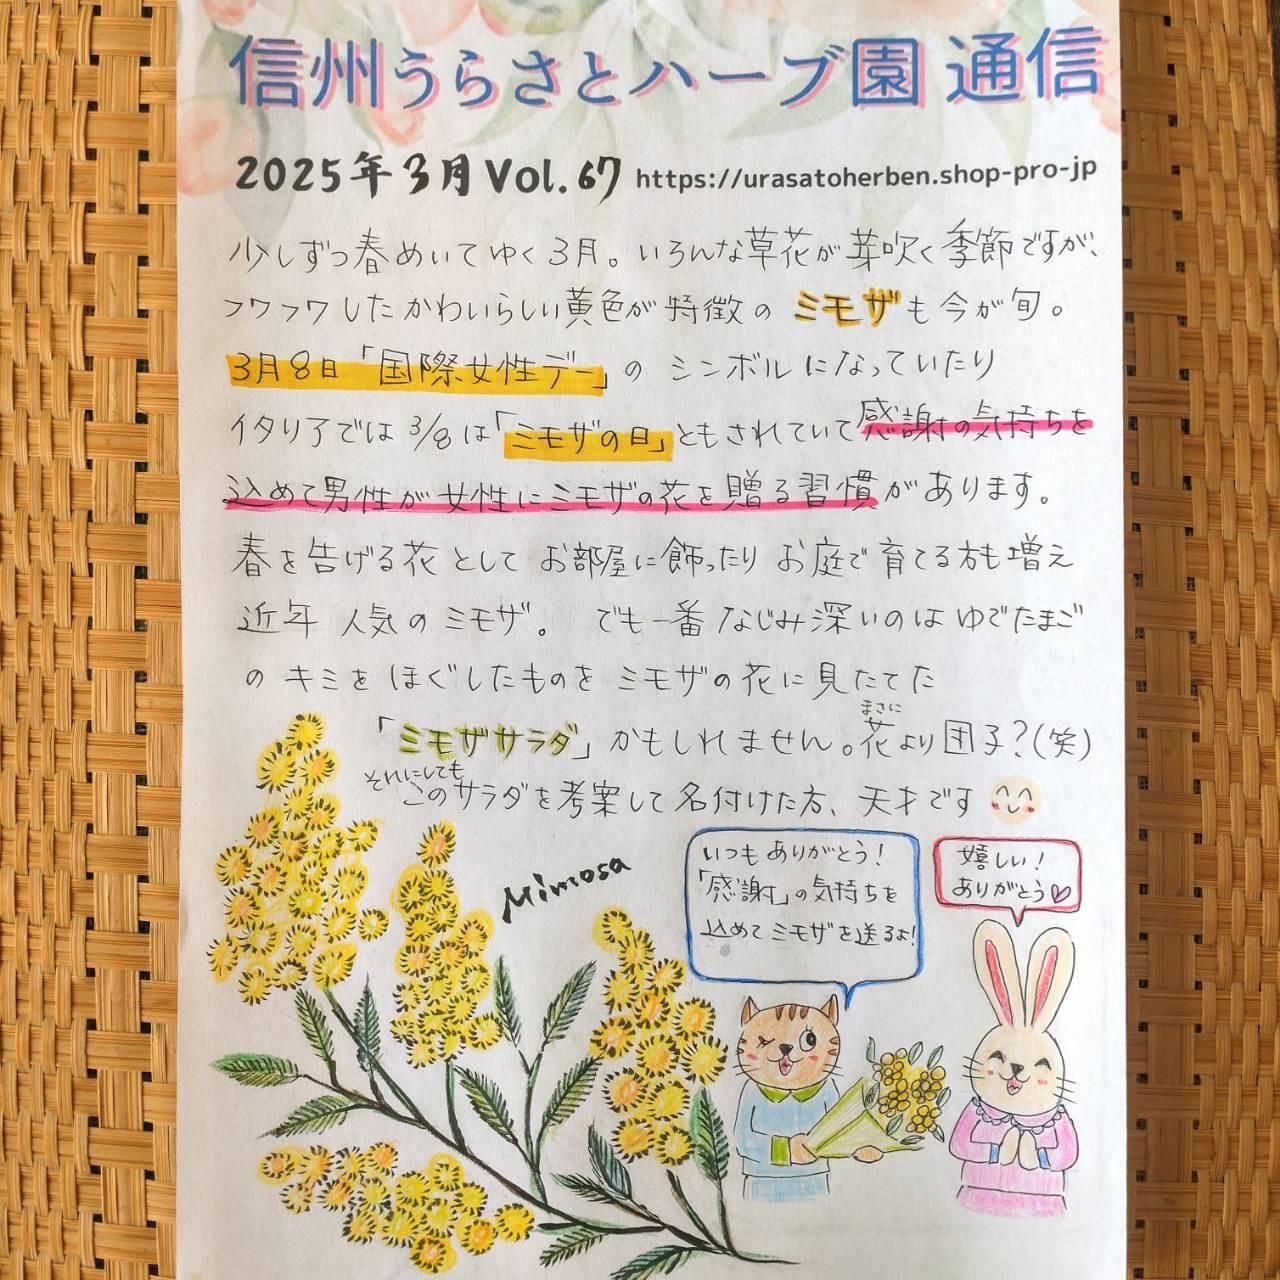 信州うらさとハーブ園 通信
2025年3月 Vol.67 https://urasatoherben.shop-pro-jp
少しずつ春めいてゆく3月。いろんな草花が芽吹く季節ですが、
フワフワしたかわいらしい黄色が特徴の ミモザも今が旬。
3月8日「国際女性デー」の シンボルになっていたり
イタリアでは 3/8は「ミモザの日」ともされていて感謝の気持ちを
込めて男性が女性にミモザの花を贈る習慣があります。
春を告げる花として お部屋に飾ったり お庭で育てる方も増え
近年 人気のミモザ。 でも一番なじみ深いのはゆでたまご
のキミをほぐしたものをミモザの花に見たてた
「ミモザサラダ」かもしれません。まさに花より団子?(笑)
それにしてもこのサラダを考案して名付けた方、天才です
Mimosa
いつもありがとう!
「感謝」の気持ちを
込めてミモザを送るよ!
嬉しい!
ありがとう♡